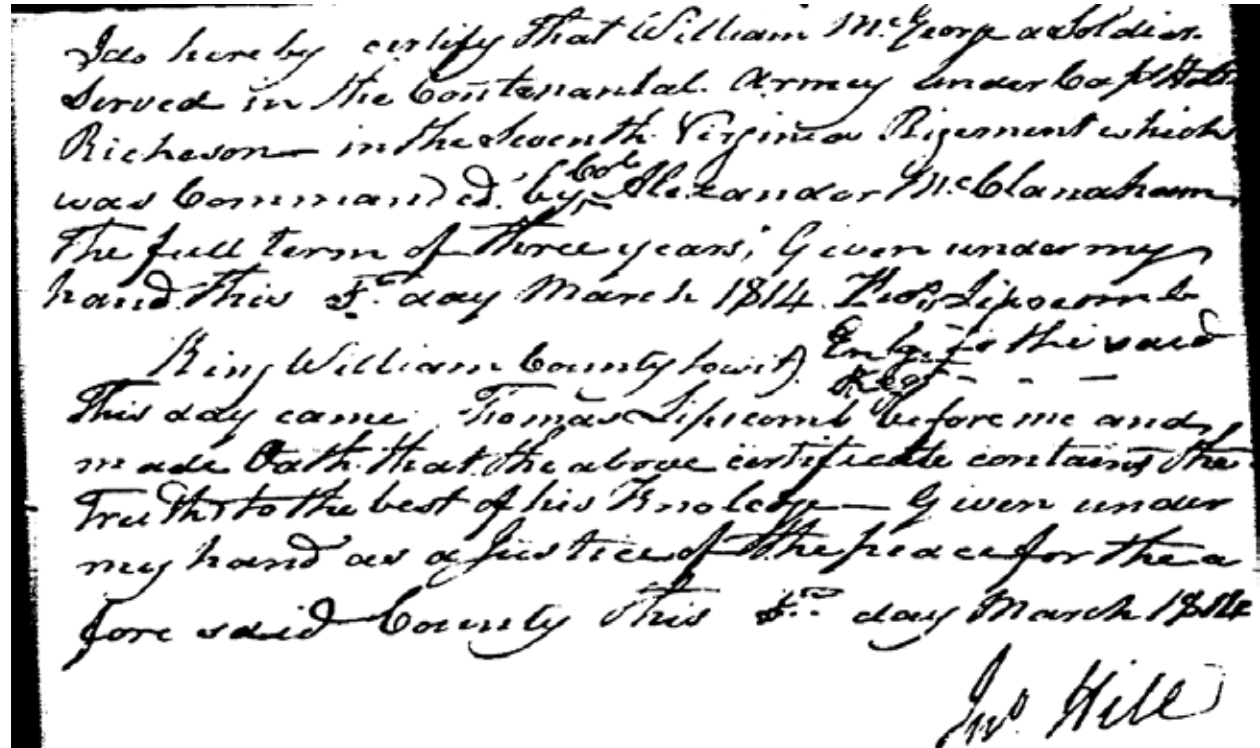 I do hereby certify that William McGeorge a Soldier
Served in the Contenantal Army under Capt Holt
Richeson in the Seventh Virginia Rigement which
was Command'ed by Col Alexander McClanaham
the full term of three years; Given under my
hand this 5th day March 1814 Thos Lipscomb
King William County towit) Ensign to the said
Regt - - -
This day came Tomas Lipscomb before me and
made Oath that the above certificate contains the
Truth to the best of his Knoledge — Given under
my hand as a Justice of the peace for the a
fore said County this 5th day March 1814
Jno Hill